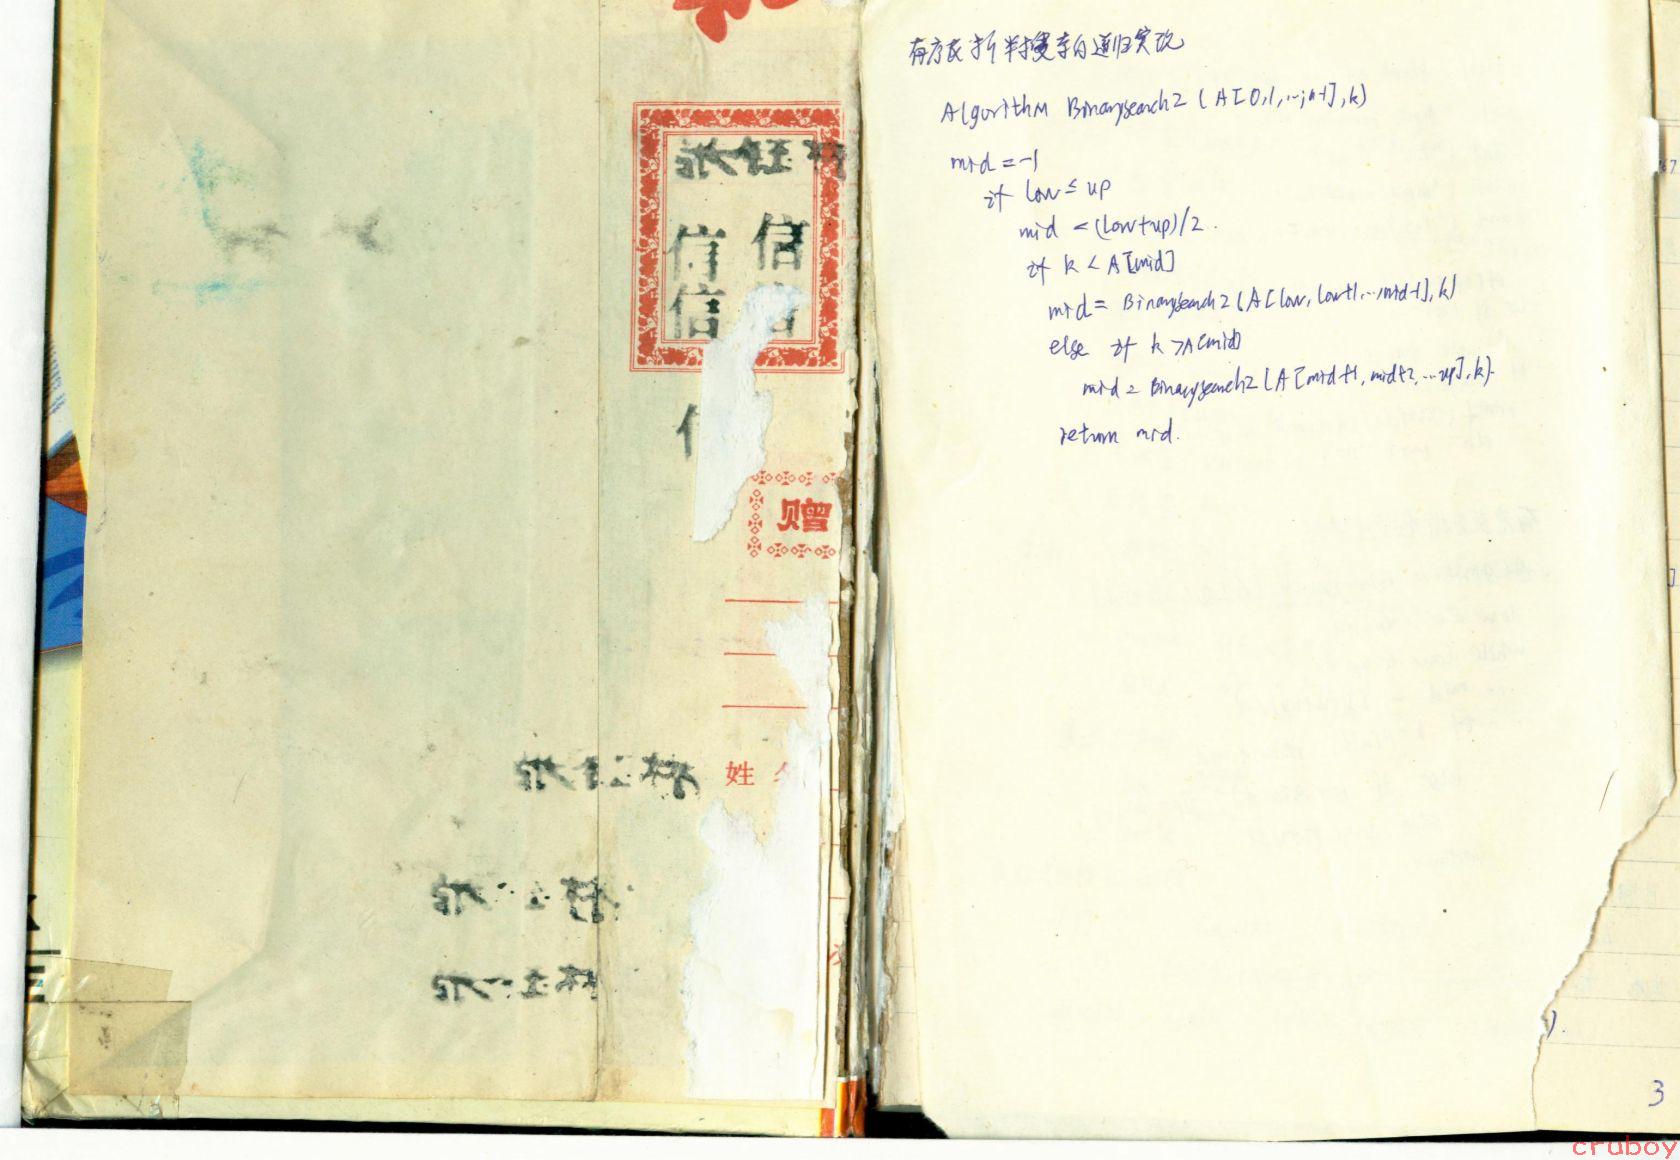 信 信
信
赠
姓
有序表折半搜索的递归实现
Algorithm Binarysearch2 (A[0,1,…,n-1],k)
mid = -1
if low ≤ up
mid = (low+up)/2.
if k < A[mid]
mid = Binarysearch2(A[low, low+1,…,mid-1],k)
else if k > A[mid]
mid = Binarysearch2(A[mid+1, mid+2,…up],k).
return mid.
).
3
cruboy